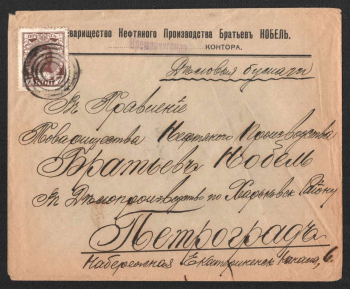 Товарищество Нефтяного Производства Братьевъ НОБЕЛЬ.
КОНТОРА.
Дѣловыя бумаги
Въ Правленіе
Товарищества Нефтяного Производства
Братьевъ Нобель
Въ Дѣлопроизводство по Району
Петроградъ
Набережная Екатерининск. Канала, 6